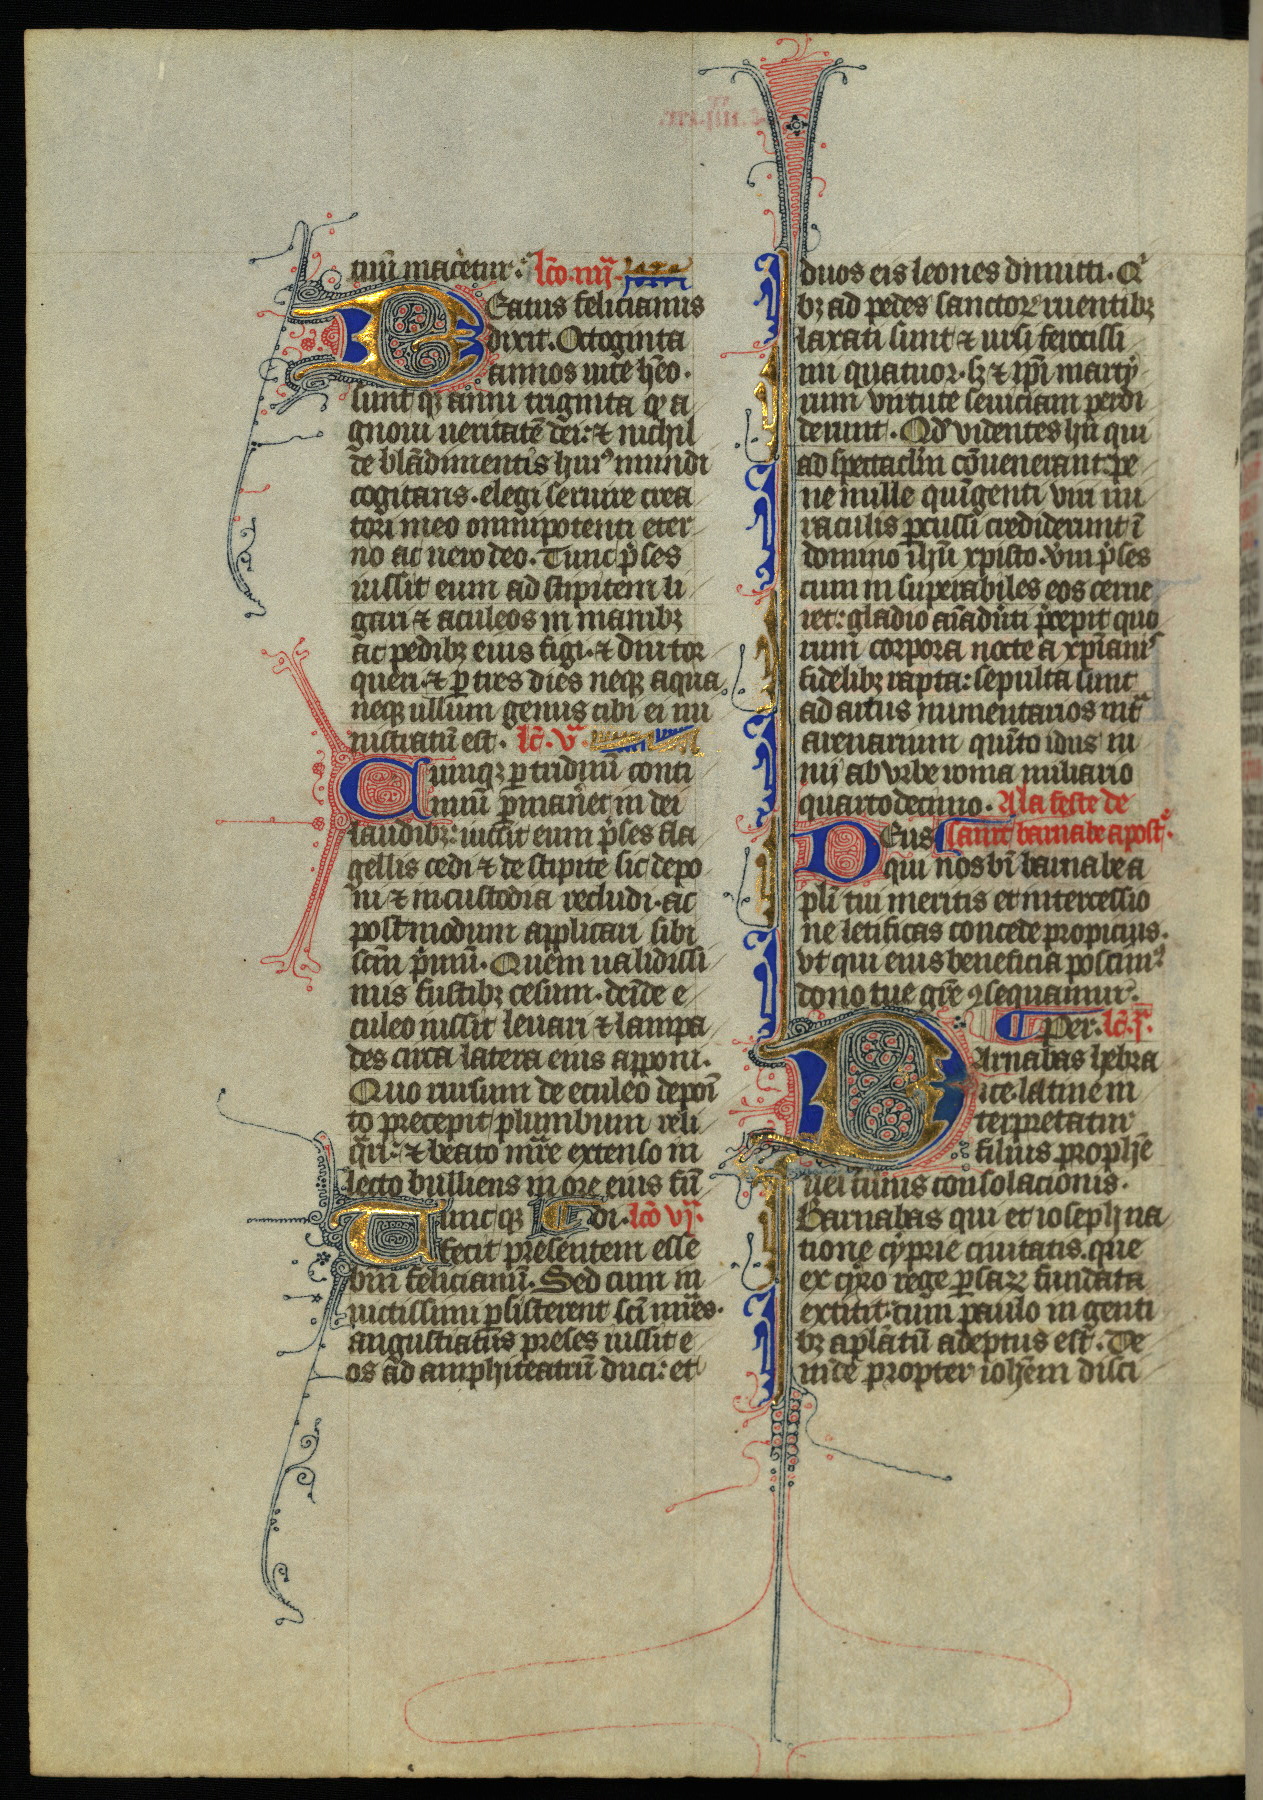 tiuū macēretur. lc̄o. iiij.
Beatus felicianus
dixit. Octoginta
annos vite hēo.
sunt q; anni triginta qp a
gnoui ueritatē dei: ⁊ nichil
de blādimentis huiꝰ mundi
cogitans. elegi seruire crea
tori meo omnipotenti eter
no ac uero deo. Tunc p̄ses
iussit eum ad stipitem li
gari ⁊ aculeos in manibꝫ
ac pedibꝫ eius figi. ⁊ diu tor
queri. ⁊ ꝑ tres dies neqꝫ aqua
neqꝫ ullum genus cibi ei mi
nistratū est. lc̄. v.
Cumqꝫ ꝑ triduū conti
nuū ꝑmaneret in dei
laudibꝫ: iussit eum p̄ses fla
gellis cedi ⁊ de stipite sic depo
ni ⁊ in custodia recludi. ac
postmodum applicari sibi
scm̄ primū. Quem ualidissi
mis fustibꝫ cesum. deīde e
culeo iussit leuari ⁊ lampa
des circa latera eius apponi.
Quo rursum de eculeo depoī
to precepit plumbum reli
qui: ⁊ beato mr̄e extenso in
lecto bulliens in ore eius fū
di. lc̄o vj.
Tunc qꝫ
fecit presentem esse
bm̄ felicianū. Sed cum in
uictissimi ꝑsisterent sc̄i mr̄es.
angustiatus preses iussit e
os ad amphiteatrū duci: et
duos eis leones dimitti. Qͥ
bꝫ ad pedes sanctoꝝ ruentibꝫ
laxati sunt ⁊ ursi ferocissi
mi quatuor. sꝫ ⁊ ip̄i marty
rum virtute seuiciam perdi
derunt. Qd̄ videntes hii qui
ad spectaclm̄ cōuenerant: pe
ne mille quīgenti viri mi
raculis ꝑcussi crediderunt ī
domino ih̄u xpisto. Vm p̄ses
cum in superabiles eos cerne
ret: gladio aīaduti p̄cepit quo
rum corpora nocte a xp̄ianis
fidelibꝫ rapta: sepulta sunt
ad artus numentarios int̄
arenarium quīto idus iu
nii ab vrbe roma miliario
quartodecimo. A la feste de
saint barnabe apost̄.
Deus
qui nos bī barnabe a
pl̄i tui meritis et intercessio
ne letificas concede propicius.
vt qui eius beneficia poscimꝰ
dono tue gr̄e ꝯsequamur.
Per. lc̄. j.
Barnabas hebra
ice. latine in
terpretatur
filius prophē
uel filius consolacionis.
Barnabas qui et ioseph na
tione cyprie ciuitatis. que
ex cyro rege ꝑsaꝝ fundata
extitit: cum paulo in genti
bꝫ apl̄atū adeptus est. De
inde propter ioh̄em disci